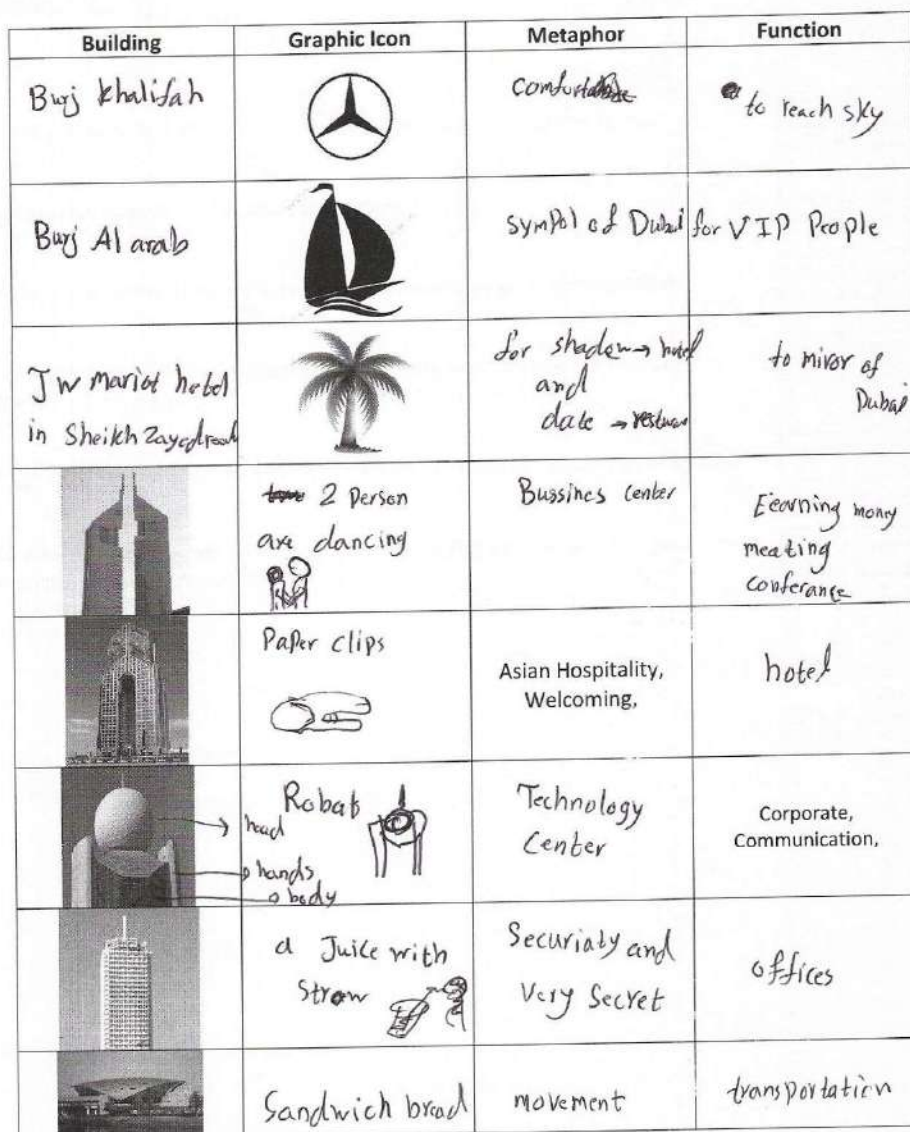 Building Graphic Icon Metaphor Function
Burj Khalifah
comfort
to reach sky
Burj Al arab
sympol of Dubai
for VIP People
JW mariot hotel
in Sheikh Zayed road
for shadow → hotel
and
date →
to miror of
Dubai
2 Person
are dancing
Bussines Center
Eearning mony
meating
conferance
Paper clips
Asian Hospitality,
Welcoming,
hotel
head
hands
body
Robat
Technology
Center
Corporate,
Communication,
a Juice with
Strow
Securiaty and
Very Secret
offices
Sandwich bread
movement
transportation